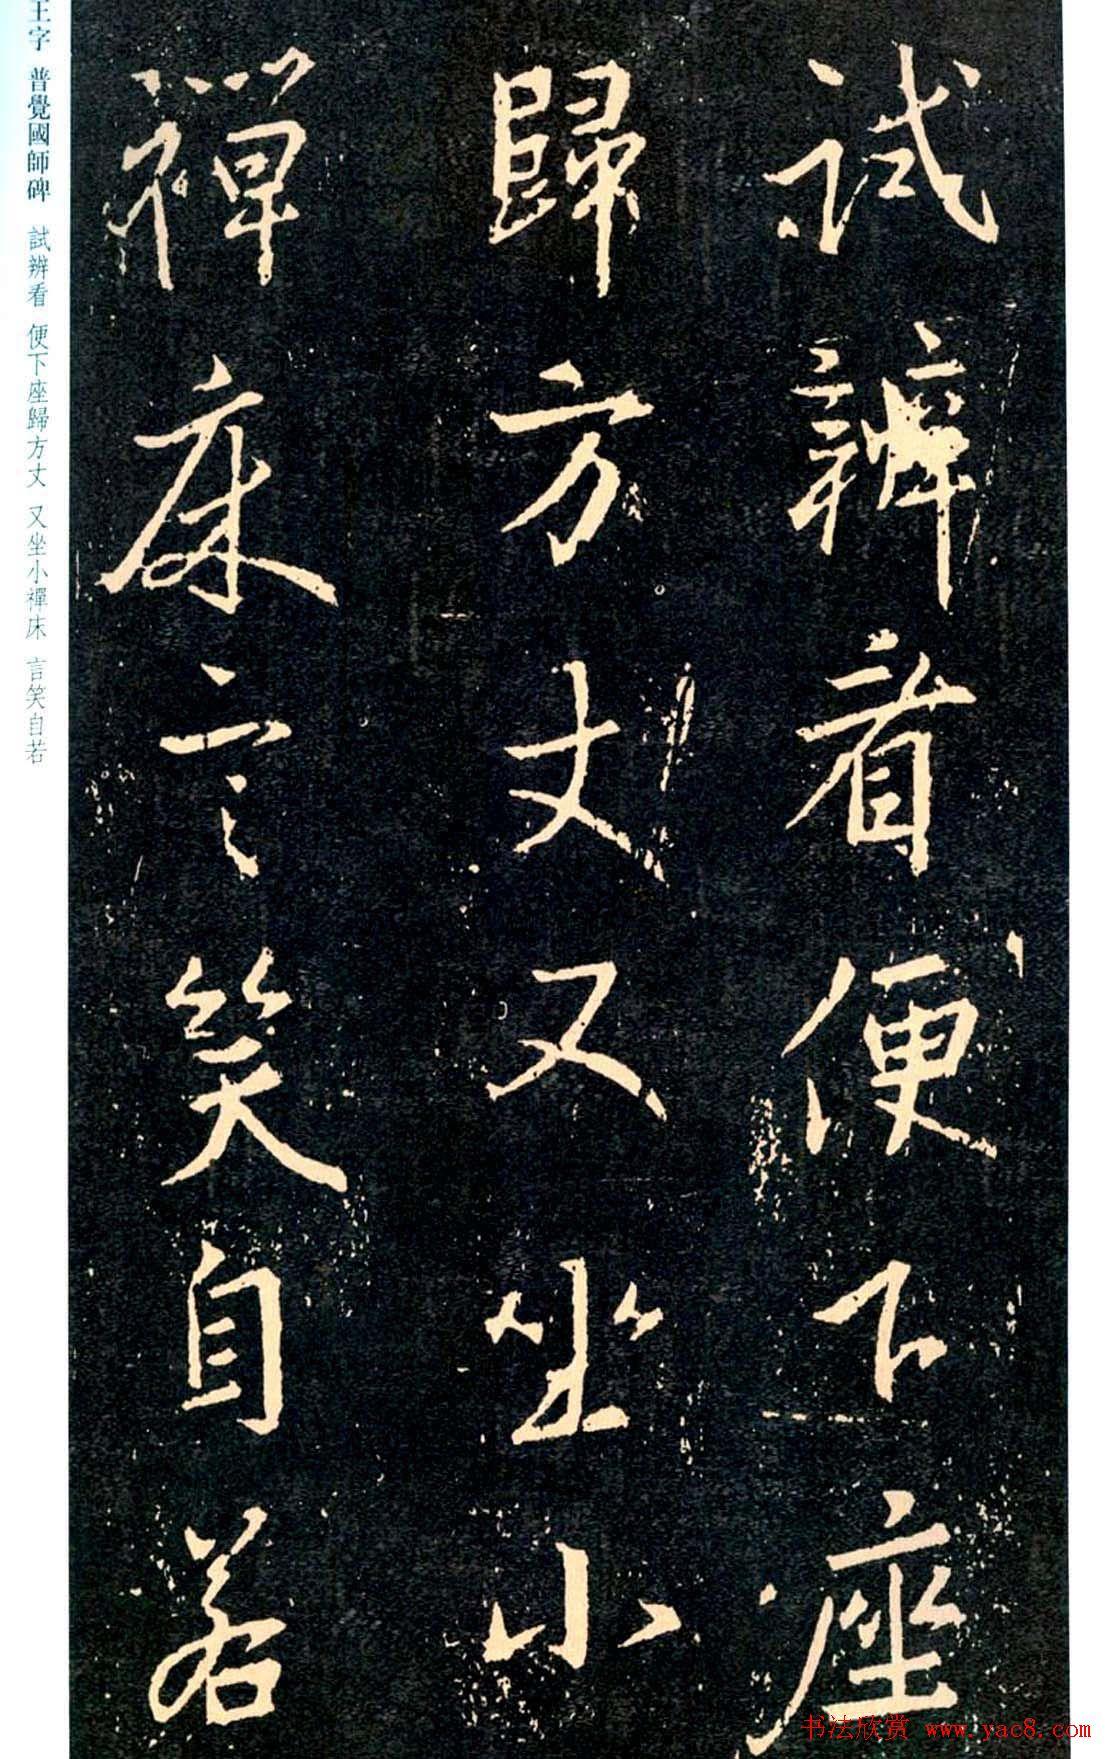 試辨看便下座
歸方丈又坐小
禪床言笑自若
王字 普覺國師碑 試辨看 便下座歸方丈 又坐小禪床 言笑自若
书法欣赏 www.yac8.com